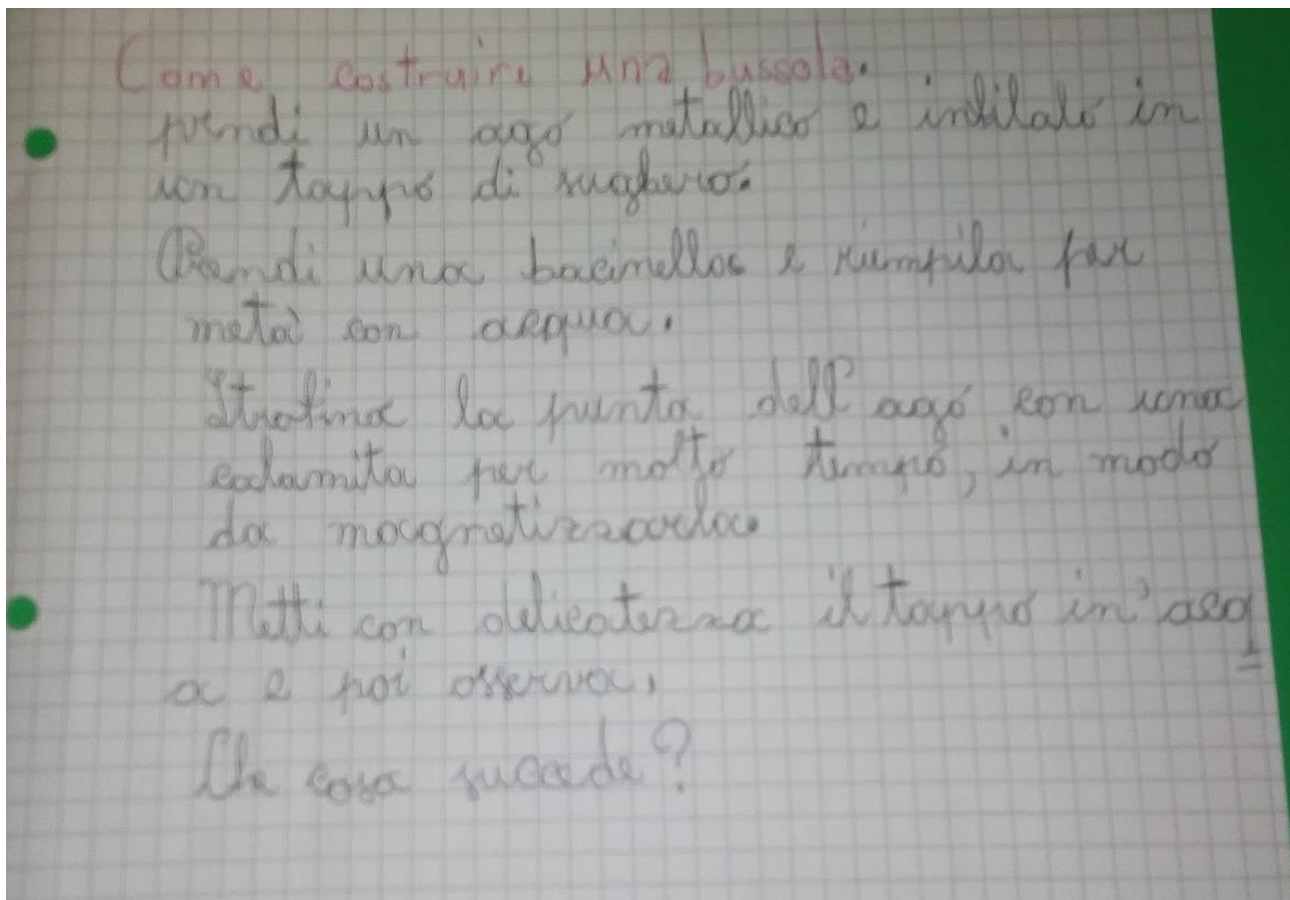 Come costruire una bussola.
prendi un ago metallico e infilalo in
un tappo di sughero.
Prendi una bacinella e riempila per
metà con acqua.
Strofina la punta dell'ago con una
calamita per molto tempo, in modo
da magnetizzarla.
Metti con delicatezza il tappo in' acq
a e poi osserva.
Che cosa succede?